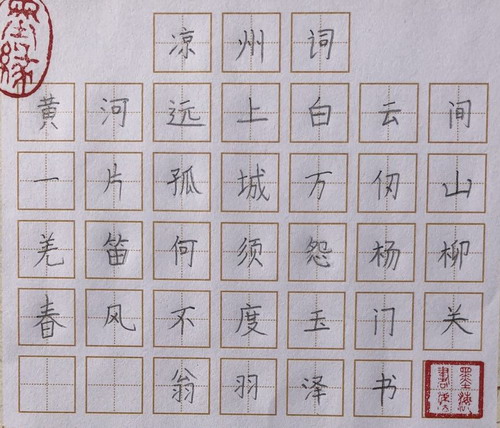 墨缘
凉州词
黄河远上白云间
一片孤城万仞山
羌笛何须怨杨柳
春风不度玉门关
翁羽泽书